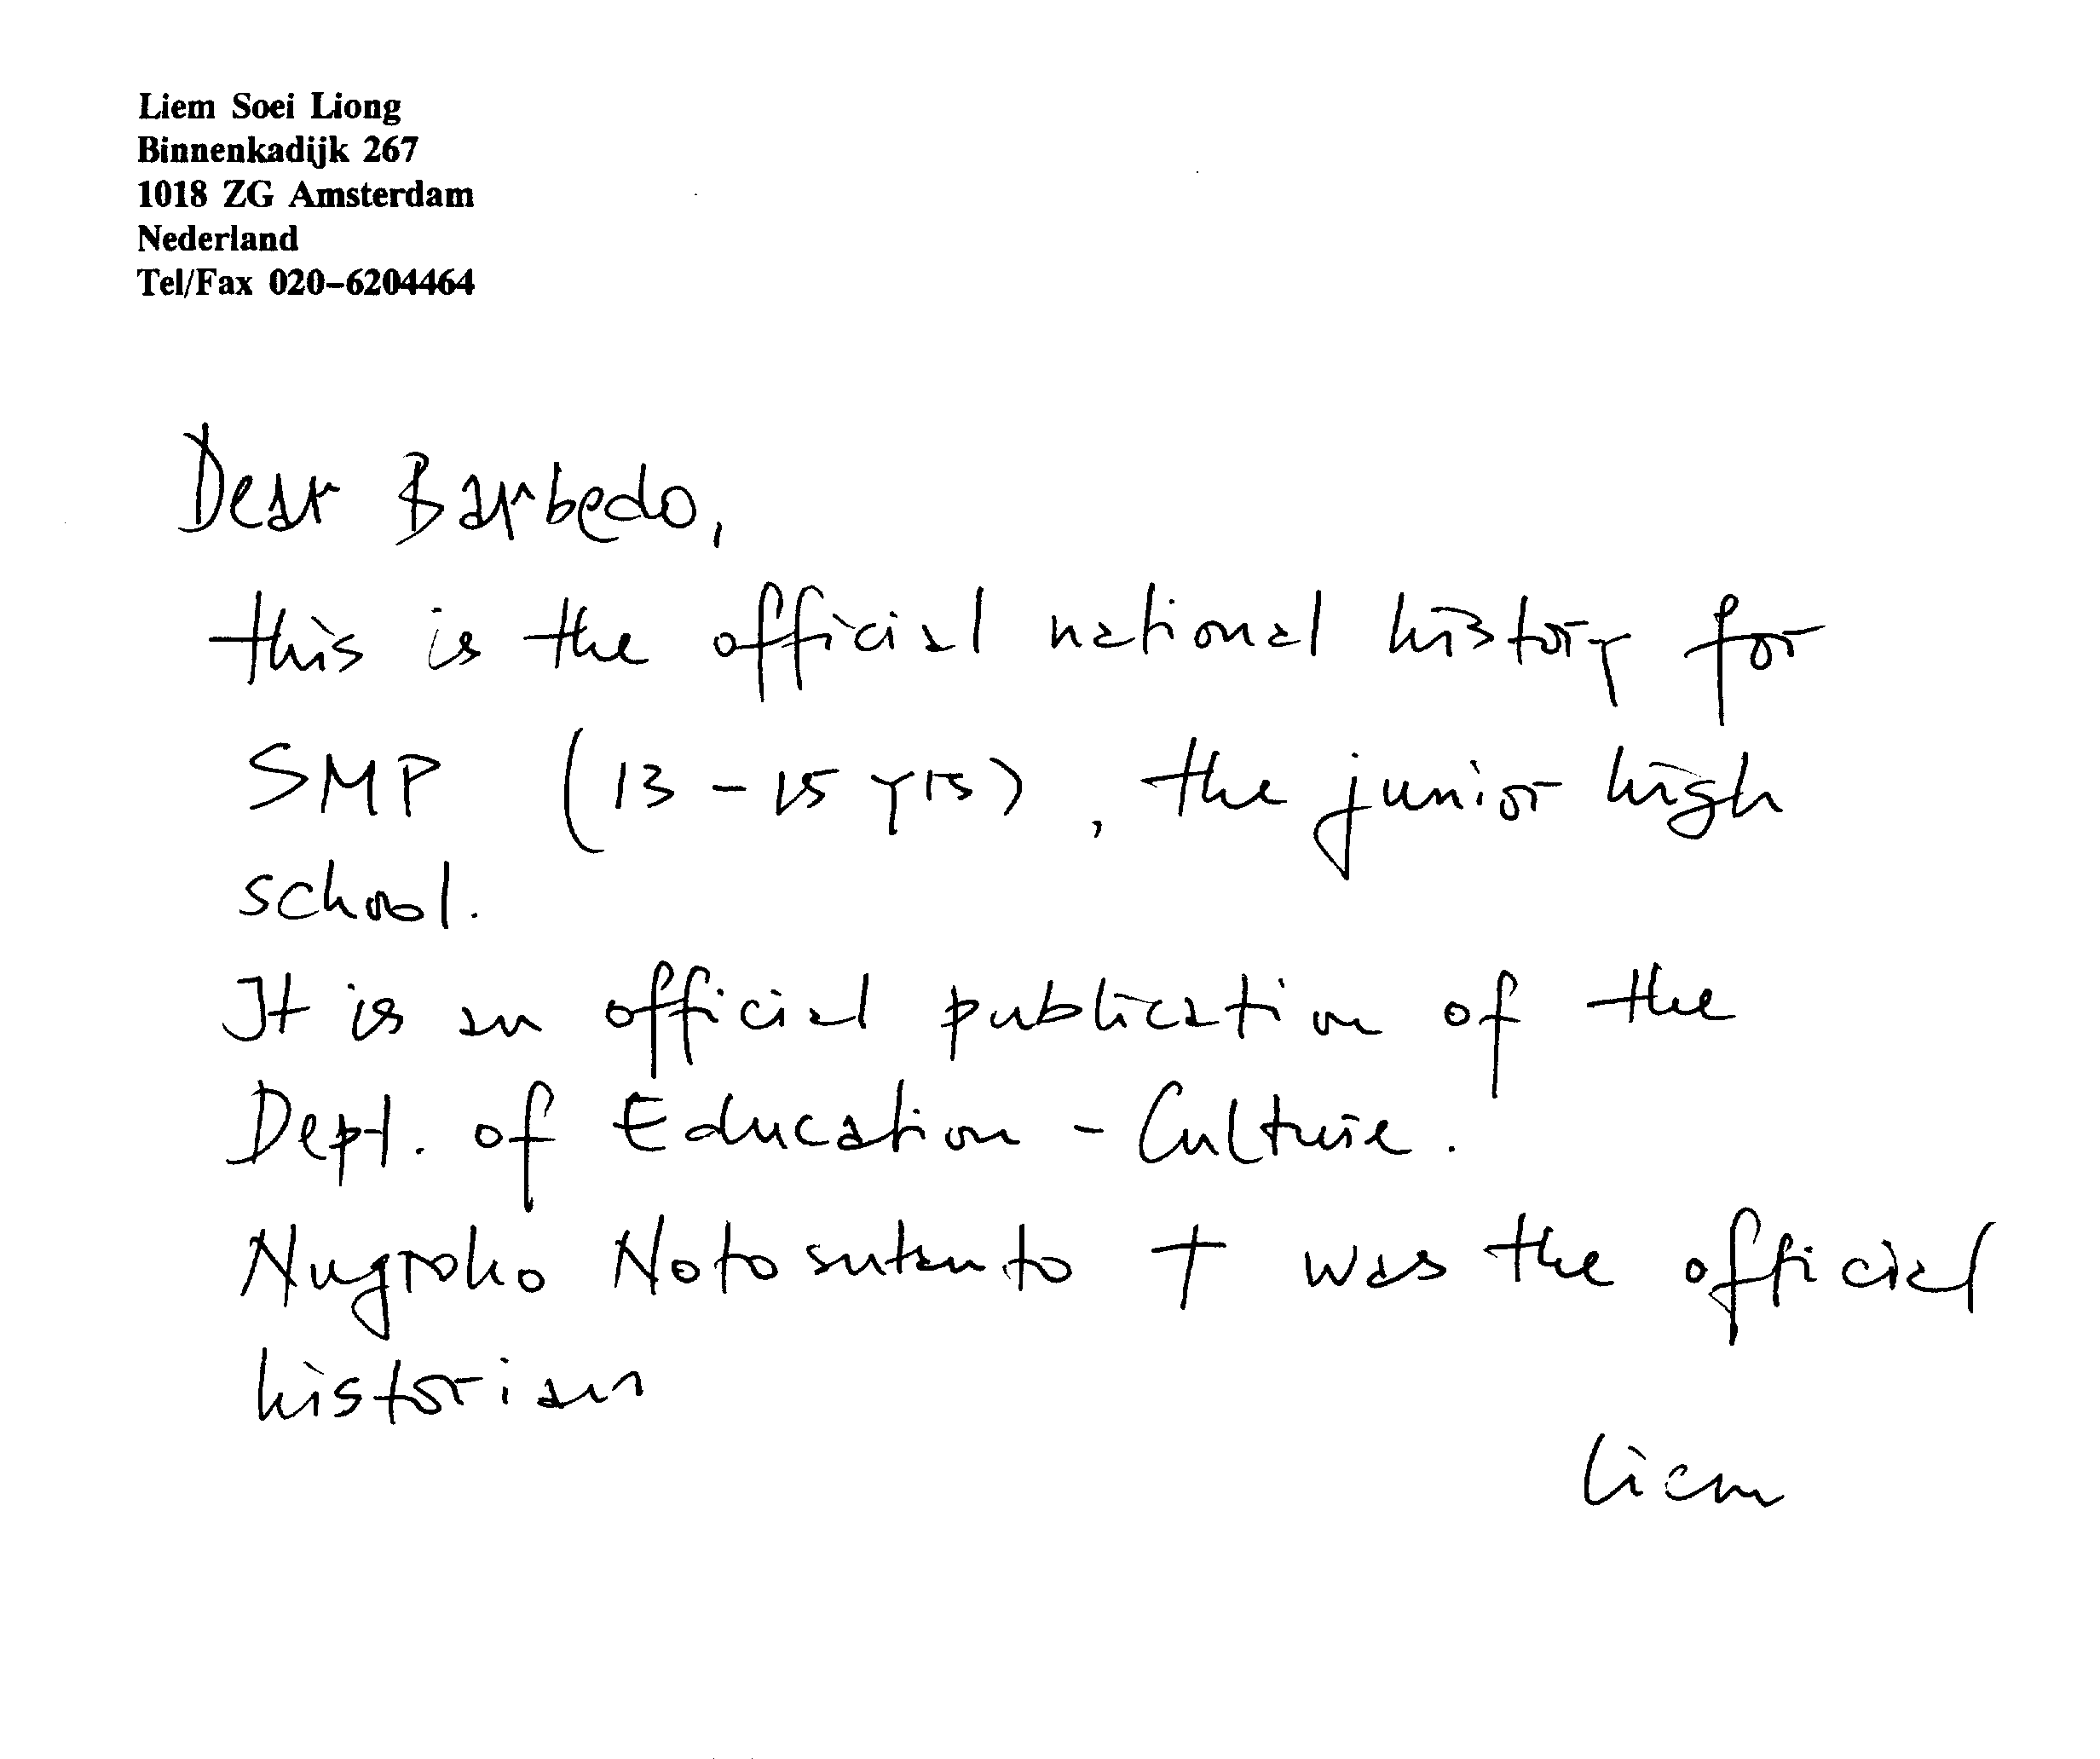 Liem Soei Liong
Binnenkadijk 267
1018 ZG Amsterdam
Nederland
Tel/Fax 020-6204464
Dear Barbedo,
this is the official national history for
SMP (13 - 15 yrs), the junior high
school.
It is an official publication of the
Dept. of Education - Culture.
Nugroho Notosutanto † was the official
historian
Liem